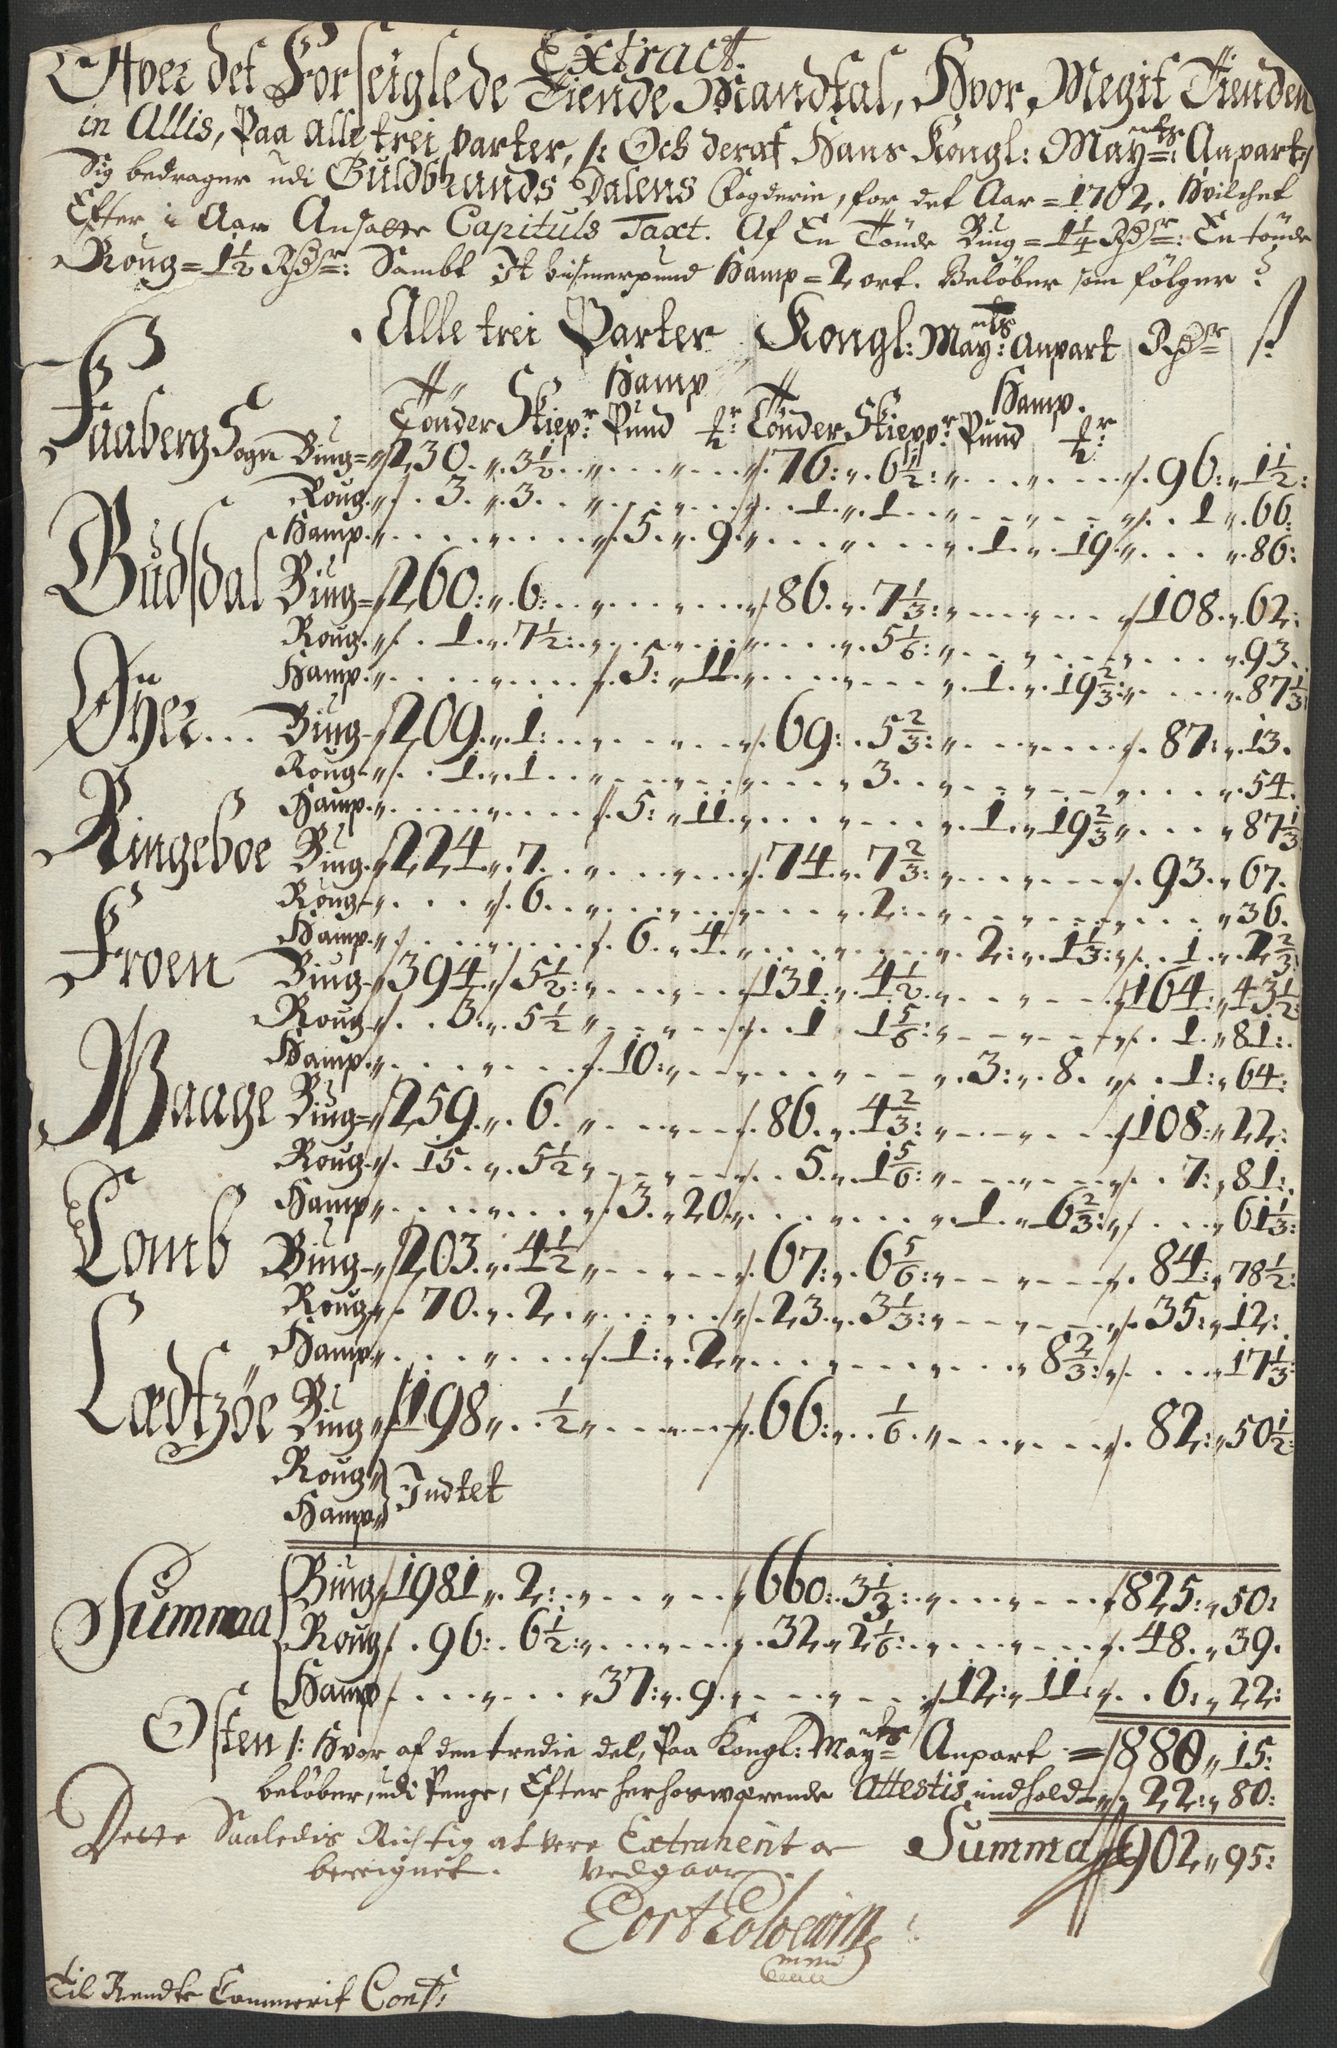 Extract.
Ofver det Forseiglede Tiende Mandtal, Hvor Megit Tienden
in Allis, Paa Alle trei parter, /: Och deraf Hans Kongl: Mayts: Anpart :/
Sig bedrager udi Guldbrands Dalens Fogderie, for det Aar = 1702. Hvilchet
Efter i Aar Ansatte Capituls Taxt. Af En Tönde Biug = 1 1/4 Rdr: En tönde
Roug = 1 1/2 Rdr: Sambt It bismerpund Hamp = 2 ort. Belöber som fölger :
Alle trei Parter Kongl: Mayts: Anpart Rdr ß
Hamp Hamp.
Tönder Skiepr: Pund Tönder Skieppr Pund
Faaberg Sogn Biug = 230. 3 1/2 76: 6 1/2: 96: 1 1/2:
Roug 3. 3. 1. 1 1. 66:
Hamp 5. 9. 1. 19. 86:
Gudsdal Biug = 260: 6: 86. 7 1/3: 108. 62:
Roug 1. 7 1/2: 5 1/6: 93.
Hamp 5: 11. 1. 19 2/3: 87 1/3:
Öyer Biug 209. 1: 69: 5 2/3: 87: 13.
Roug 1. 1 3. 54.
Hamp 5: 11. 1. 19 2/3 87 1/3
Ringeboe Biug 224. 7. 74. 7 2/3: 93. 67.
Roug 6. 2: 36.
Hamp 6. 4. 2: 1 1/3: 1. 2 2/3:
Froen Biug 394. 5 1/2: 131. 4 1/2. 164: 43 1/2:
Roug 3. 5 1/2 1 1 5/6: 1. 81:
Hamp 10: 3: 8. 1: 64:
Waage Biug 259. 6. 86. 4 2/3: 108: 22:
Roug 15. 5 1/2 5. 1 5/6: 7: 81:
Hamp 3. 20. 1. 6 2/3: 61 1/3:
Lomb Biug 203. 4 1/2 67: 6 5/6: 84: 78 1/2:
Roug 70. 2. 23. 3 1/3: 35: 12:
Hamp 1: 2. 8 2/3: 17 1/3:
Lædtzöe Biug 198. 1/2 66: 1/6 82: 50 1/2:
Roug
Indtet
Hamp
Summa Biug 1981. 2: 660: 3 1/3: 825: 50:
Roug 96: 6 1/2: 32. 2 1/6: 48. 39.
Hamp 37: 9. 12: 11. 6: 22:
880. 15:
Osten /: Hvor af den tredie del, Paa Kongl: Mayts Anpart =
belöber, udi Penge, Efter herhosværende Attestis indhold 22: 80:
Summa 902. 95:
Dette Saaledis Richtig at vere Extraherit oc
bereignet. Vedgaar
Til Rendte Cammerit